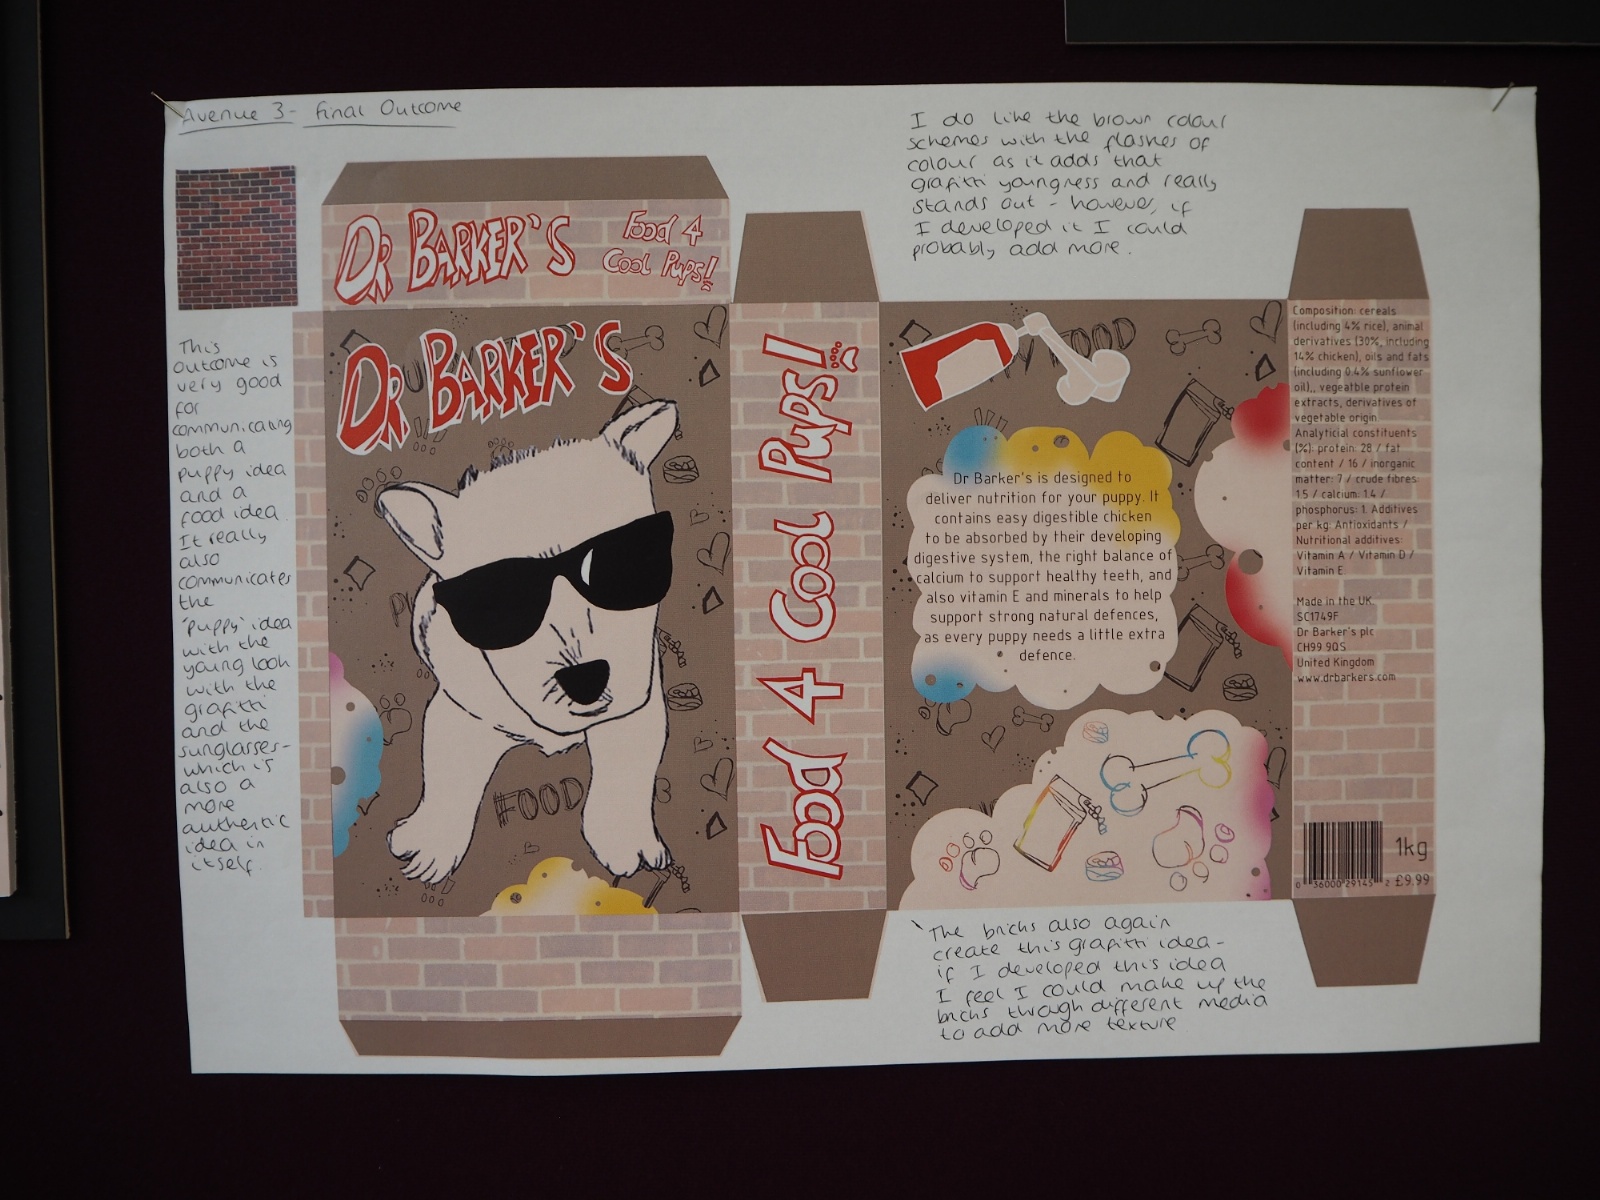 Avenue 3- Final Outcome
I do like the brown colour
schemes with the flashes of
colour as it adds that
grafitti youngness and really
stands out - however, if
I developed it I could
probably add more.
This
outcome is
very good
for
communicating
both a
puppy idea
and a
food idea.
It really
also
communicates
the
'puppy' idea
with the
young look
with the
grafitti
and the
sunglasses-
which is
also a
more
authentic
idea in
itself.
DR BARKER'S
Food 4
Cool Pups!
DR BARKER'S
FOOD
Food 4 Cool Pups!
FOOD
Dr Barker's is designed to
deliver nutrition for your puppy. It
contains easy digestible chicken
to be absorbed by their developing
digestive system, the right balance of
calcium to support healthy teeth, and
also vitamin E and minerals to help
support strong natural defences,
as every puppy needs a little extra
defence.
Composition: cereals
(including 4% rice), animal
derivatives (30%, including
14% chicken), oils and fats
(including 0.4% sunflower
oil),, vegeatble protein
extracts, derivatives of
vegetable origin.
Analyticial constituents
(%): protein: 28 / fat
content / 16 / inorganic
matter: 7 / crude fibres:
1.5 / calcium: 1.4 /
phosphorus: 1. Additives
per kg: Antioxidants /
Nutritional additives:
Vitamin A / Vitamin D /
Vitamin E.
Made in the UK.
SC1749F
Dr Barker's plc
CH99 9QS
United Kingdom
www.drbarkers.com
1kg
£9.99
0 36000 29145 2
The bricks also again
create this grafitti idea-
if I developed this idea
I feel I could make up the
bricks through different media
to add more texture.